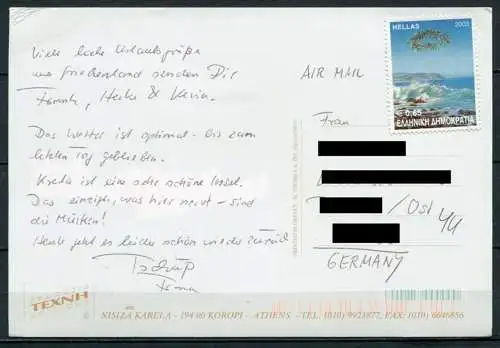 Viele liebe Urlaubsgrüße
aus Griechenland senden Dir
Heike & Kevin.
Das Wetter ist optimal - bis zum
letzten Tag geblieben.
Kreta ist eine sehr schöne Insel.
Das einzige, was hier nervt - sind
die Mücken!
Heute geht es leider schon wieder zurück
AIR MAIL
Frau
/Ost
GERMANY
HELLAS 2003
€ 0,65
ΕΛΛΗΝΙΚΗ ΔΗΜΟΚΡΑΤΙΑ
TEXNH
NISIZA KARELA - 194 00 KOROPI - ATHENS - TEL. (010) 9923877, FAX: (010) 6646856